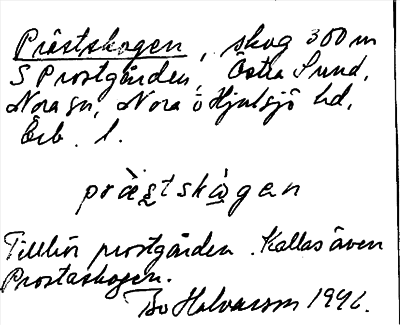 Prästskogen, skog 300 m
S Prostgården, Östra Sund,
Nora sn, Nora o Hjulsjö hd,
Örb. l.
præstskògen
Tillhör prostgården. Kallas även
Prostaskogen.
Bo Halvarsson 1946.